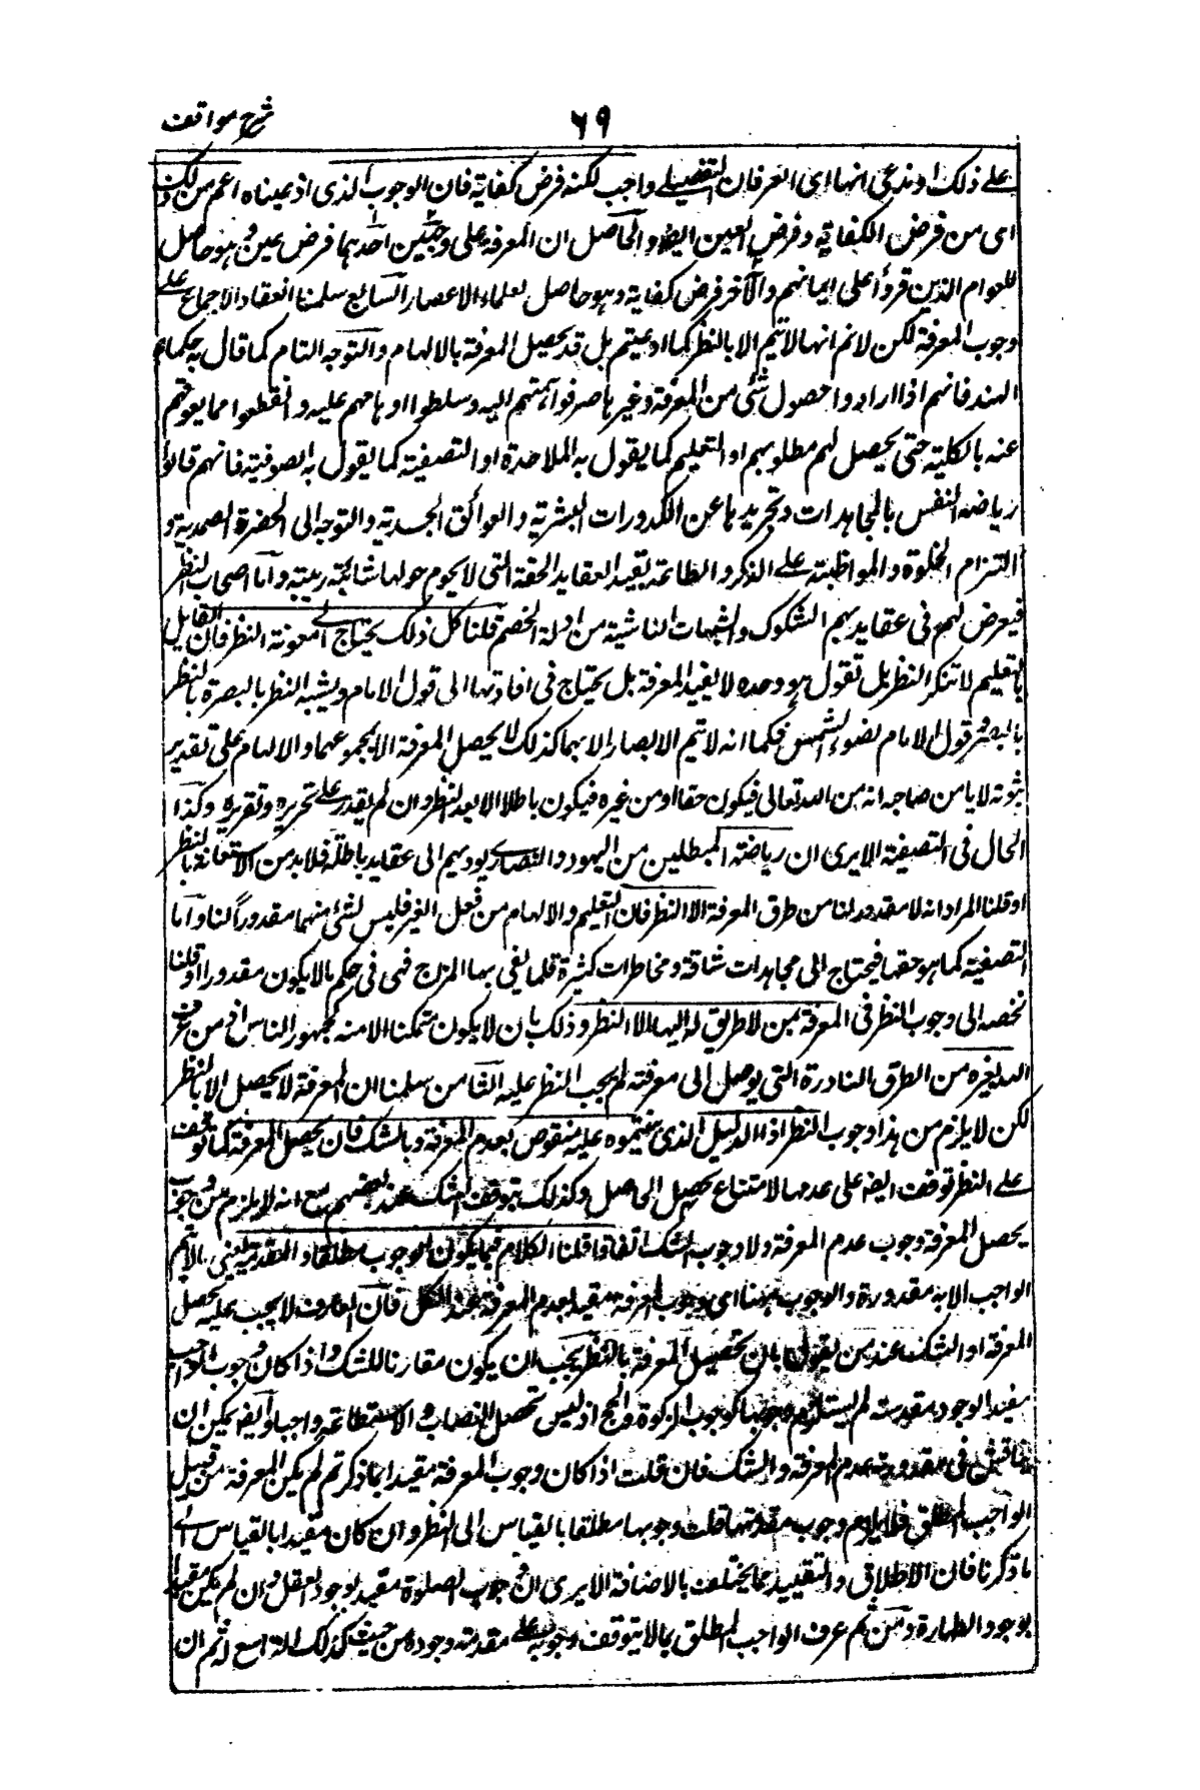 ٦٩
شرح مواقف
على ذلك او ندعى انها اى العرفان التفصيلے واجب لكنه فرض كفاية فان الوجوب الذى ادعيناه اعم من ذلك
اى من فرض الكفاية و فرض العين ايضا و الحاصل ان المعرفة على وجهين احدهما فرض عين و هو حاصل
للعوام الذين قروا على ايمانهم والآخر فرض كفاية و هو حاصل لعلماء الاعصار السابع سلمنا انعقاد الاجماع علے
وجوب المعرفة لكن لانم انها لا تتم الا بالنظر كما ادعيتم بل قد يحصل المعرفة بالالهام والتوجه التام كما قال به حكماء
الهند فانهم اذا ارادوا حصول شئ من المعرفة وغيرها صرفوا همتهم اليه وسلطوا اوهامهم عليه و انقطعوا مما يعوقهم
عنه بالكلية حتى يحصل لهم مطلوبهم او التعليم كما يقول به الملاحدة او التصفية كما يقول به الصوفية فانهم قالوا
رياضة النفس بالمجاهدات وتجريدها عن الكدورات البشرية والعوائق الجسدية والتوجه الى الحضرة الصمدية و
التزام الخلوة والمواظبة علے الذكر والطاعة يفيد العقايد الحقة التى لا يحوم حولها شائبة ريبة و اما اصحاب النظر
فيعرض لهم فى عقايدهم الشكوك والشبهات الناشية من ادلة الخصم قلنا كل ذلك يحتاج الے معونة النظر فان القايل
بالتعليم لا تنكر النظر بل تقول هو وحده لا يفيد المعرفة بل يحتاج فى افادتها الى قول الامام ويشبه النظر بالبصيرة بالنظر
بالبصر و قول الامام بضوء الشمس فكما انه لا يتم الابصار الا بهما كذلك لا يحصل المعرفة الا بمجموعهما والالهام على تقدير
ثبوته لا يامن صاحبه انه من الله تعالى فيكون حقا او من غيره فيكون باطلا الا بعد النظر وان لم يقدر علے تحريره وتقريره وكذا
الحال فى التصفية الا يرى ان رياضة المبطلين من اليهود والنصارے يوديهم الى عقايد باطلة فلا بد من الاستعانة بالنظر
او قلنا المراد انه لا مقدور لنا من طرق المعرفة الا النظر فان التعليم والالهام من فعل الغير فليس شئ منهما مقدورا لنا و اما
التصفية كما هو حقها فيحتاج الى مجاهدات شاقة ومخاطرات كثيرة قلما يفى بها المزاج فهى فى حكم مالا يكون مقدورا او قلنا
نخصه الى وجوب النظر فى المعرفة بمن لا طريق له اليها الا النظر و ذلك بان لا يكون متمكنا الا منه كجمهور الناس اذ من عرف
الله بغيره من الطرق النادرة التى يوصل الى معرفته لم يجب النظر عليه الثامن سلمنا ان المعرفة لا يحصل الا بالنظر
لكن لا يلزم من هذا وجوب النظر اذ الدليل الذى بنيتموه عليه منقوض بعدم المعرفة و بالشك فان تحصيل المعرفة كما توقف
علے النظر توقف ايضا على عدمها لامتناع تحصيل الحاصل وكذلك يتوقف الشك عند بعضهم مع انه لا يلزم من وجوب
تحصيل المعرفة وجوب عدم المعرفة ولا وجوب الشك اتفاقا قلنا الكلام فيما يكون الوجوب مطلقا و المقدمة يعنى مالا يتم
الواجب الا به مقدورة والوجوب ههنا اى وجوب المعرفة مقيد بعدم المعرفة عند الكل فان العارف لا يجب عليه تحصيل
المعرفة او الشك عند من يقول بان تحصيل المعرفة بالنظر يجب ان يكون مقارنا للشك و اذا كان وجوب الواجب
مقيدا بوجود مقدمته لم يستلزم وجوبها كوجوب الزكوة والحج اذ ليس تحصيل النصاب و الاستطاعة واجبا و ايضا يمكن ان
يناقش فى مقدورية عدم المعرفة والشك فان قلت اذا كان وجوب المعرفة مقيدا بما ذكرتم لم يكن المعرفة من قبيل
الواجب المطلق فلا يلزم وجوب مقدمتها قلت وجوبها مطلقا بالقياس الى النظر وان كان مقيدا بالقياس الے
ما ذكرنا فان الاطلاق والتقييد مما يختلف بالاضافة الا يرى ان وجوب الصلوة مقيد بوجود العقل و ان لم يكن مقيدا
بوجود الطهارة ومن ثم عرف الواجب المطلق بما لا يتوقف وجوبه علے مقدمة وجوده من حيث كذلك التاسع لم ان